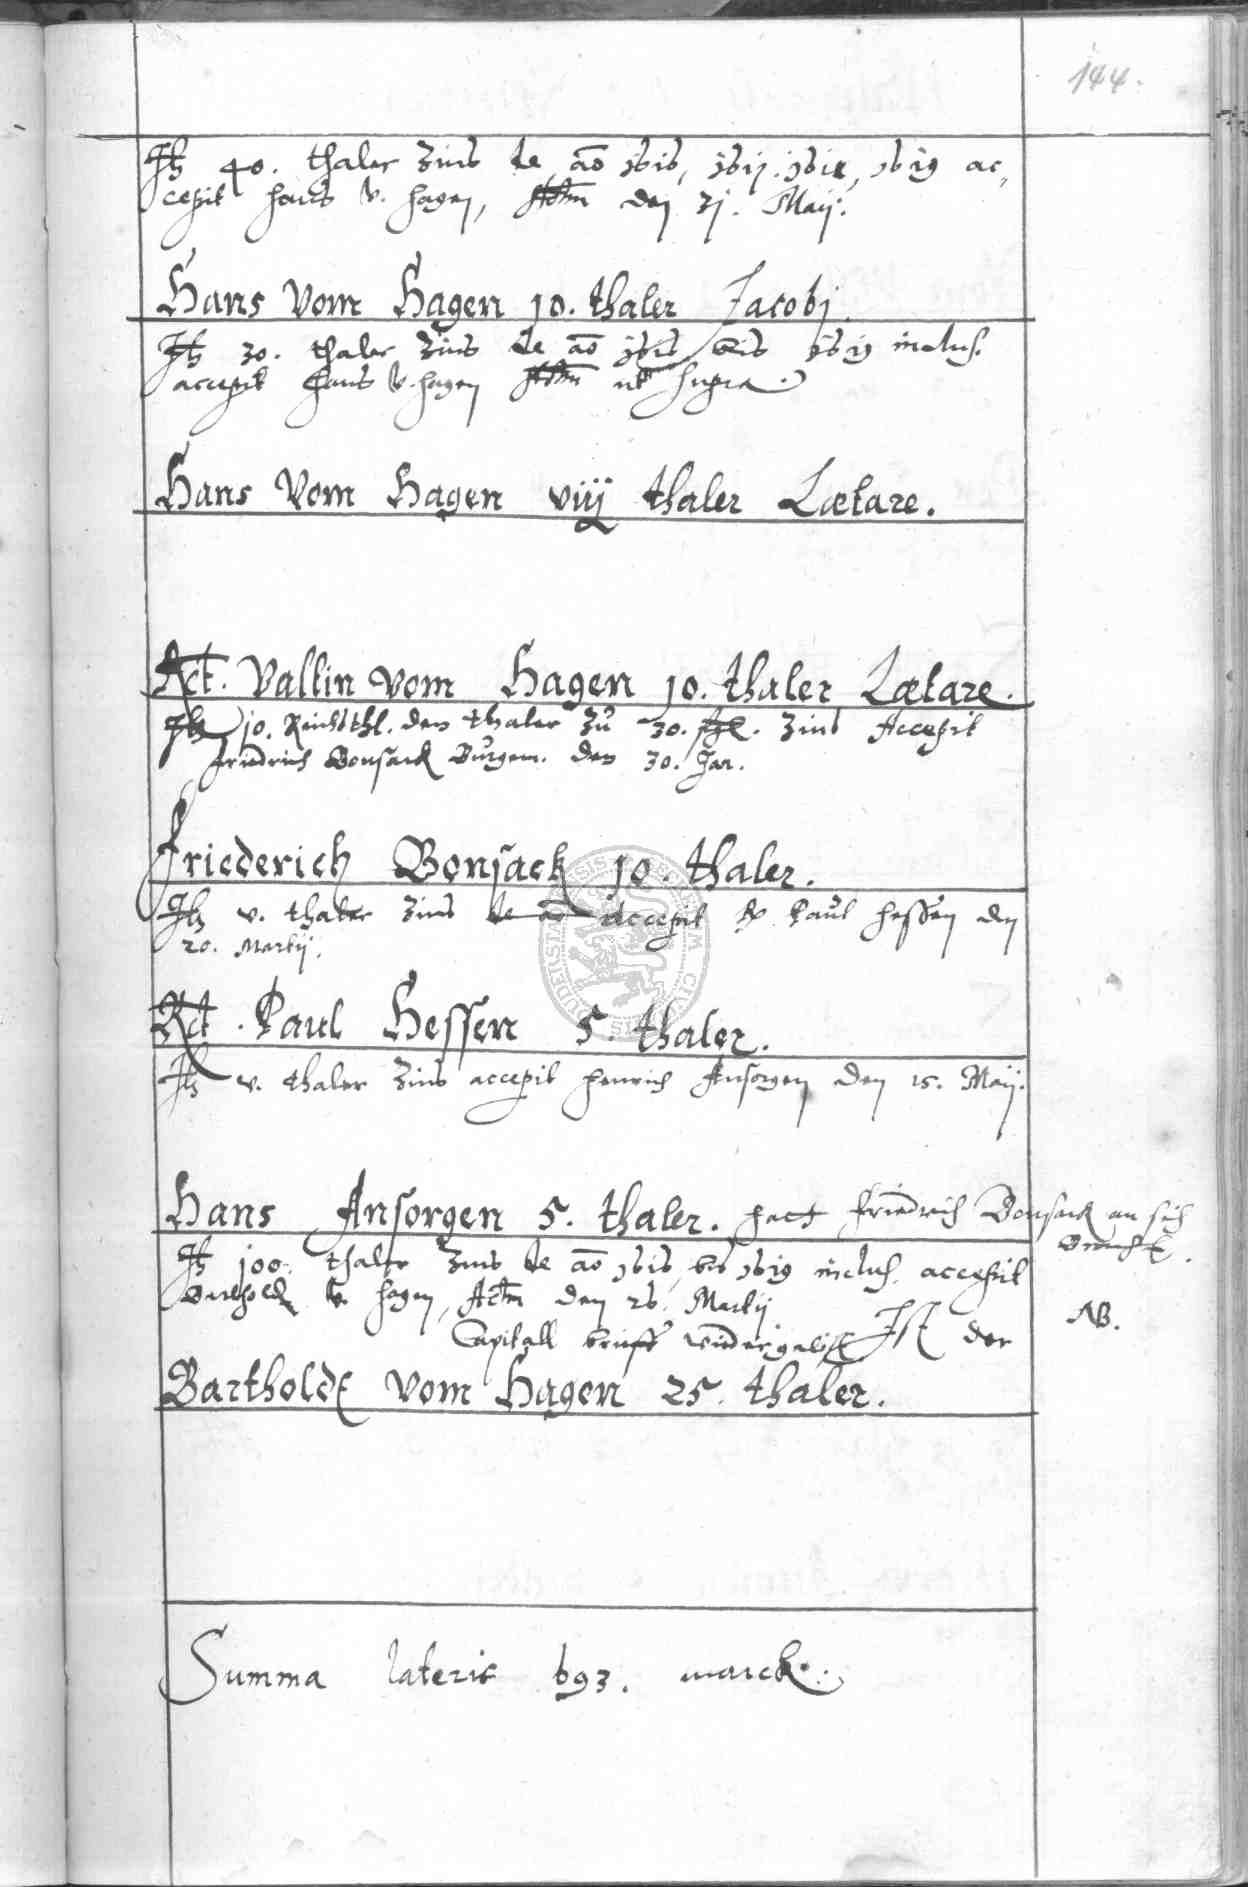 144.
It 40. thaler Zins de ao 1616, 1617. 1618, 1619 ac,
cepit Hans v. Hagen, Actm den 31. Maij.
Hans Vom Hagen 10. thaler Jacobj.
It 30. thaler Zins de ao 1616 bis 1619 inclus.
accepit Hans v. Hagen Actm ut supra.
Hans Vom Hagen viij thaler Lætare.
Rct. Valtin vom Hagen 10. thaler Lætare.
It 10. Reichsthl. den thaler zu 30. ßgl. Zins Accepit
friedrich Bonsack Burgem. den 30. Jan.
Friederich Bonsack 10. thaler.
It v. thaler Zins de ao accepit Paul Hessen den
20. Martij.
Rct. Paul Hessen 5. thaler.
It v. thaler Zins accepit Henrich Ansorgen den 15. Maij.
Hans Ansorgen 5. thaler. hatt friedrich Bonsack an sich
bracht.
It 100. thaler Zins de ao 1616 bis 1619 inclus. accepit
Barthold v. Hagen, Actm den 26. Martij
NB.
Capitall brieff wiedergelöst Ist der
Bartholdt vom Hagen 25. thaler.
Summa lateris 693. marck.